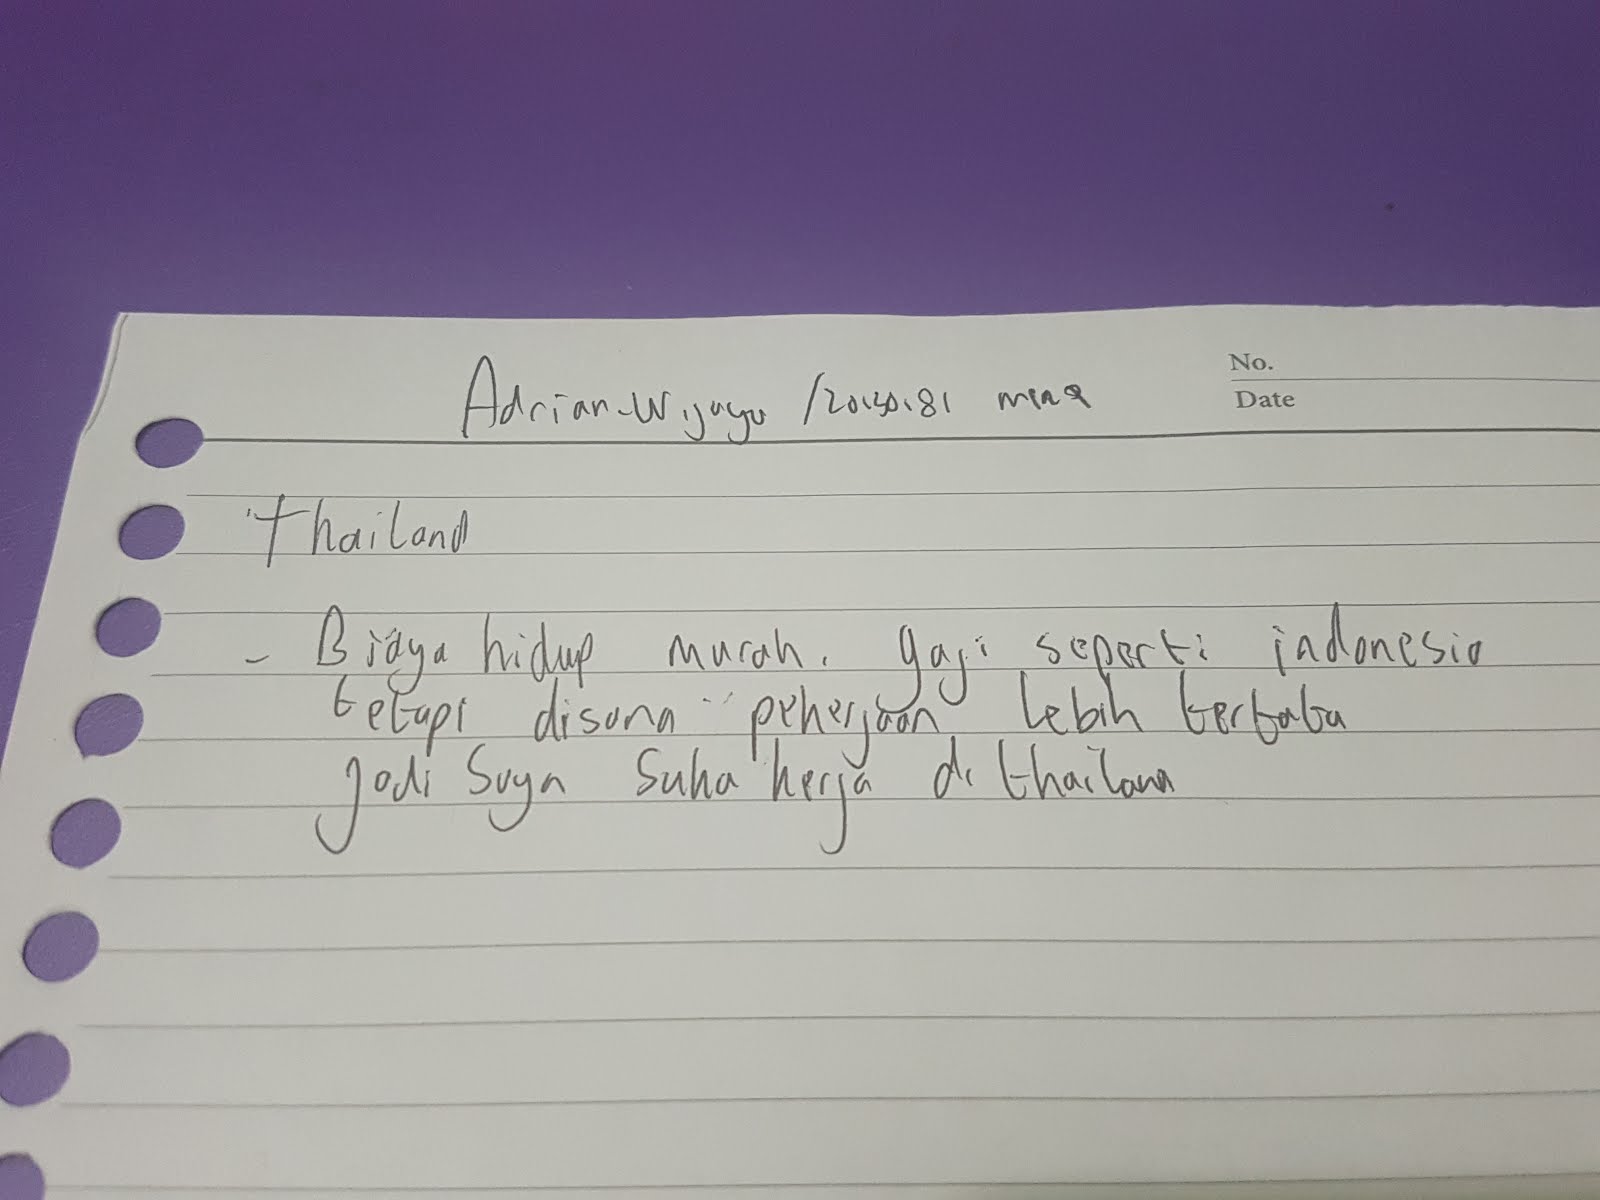 No.
Adrian-Wijaya /
Date
Thailand
- Biaya hidup murah. gaji seperti indonesia
tetapi disana pekerjaan lebih tertata
jadi saya suka kerja di thailand